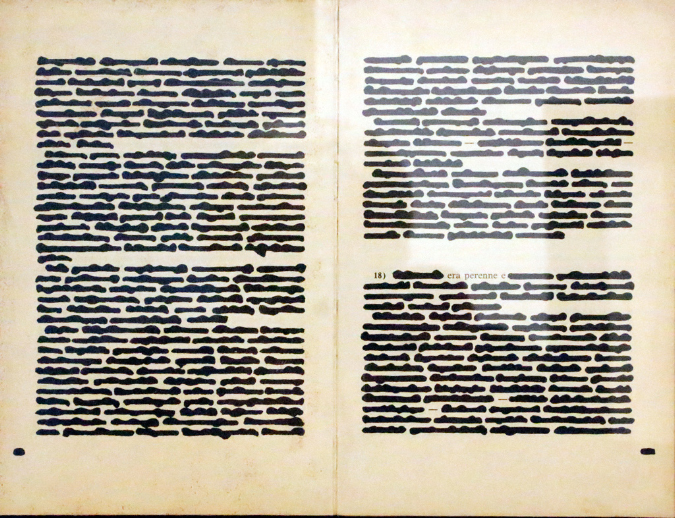 18) era perenne e